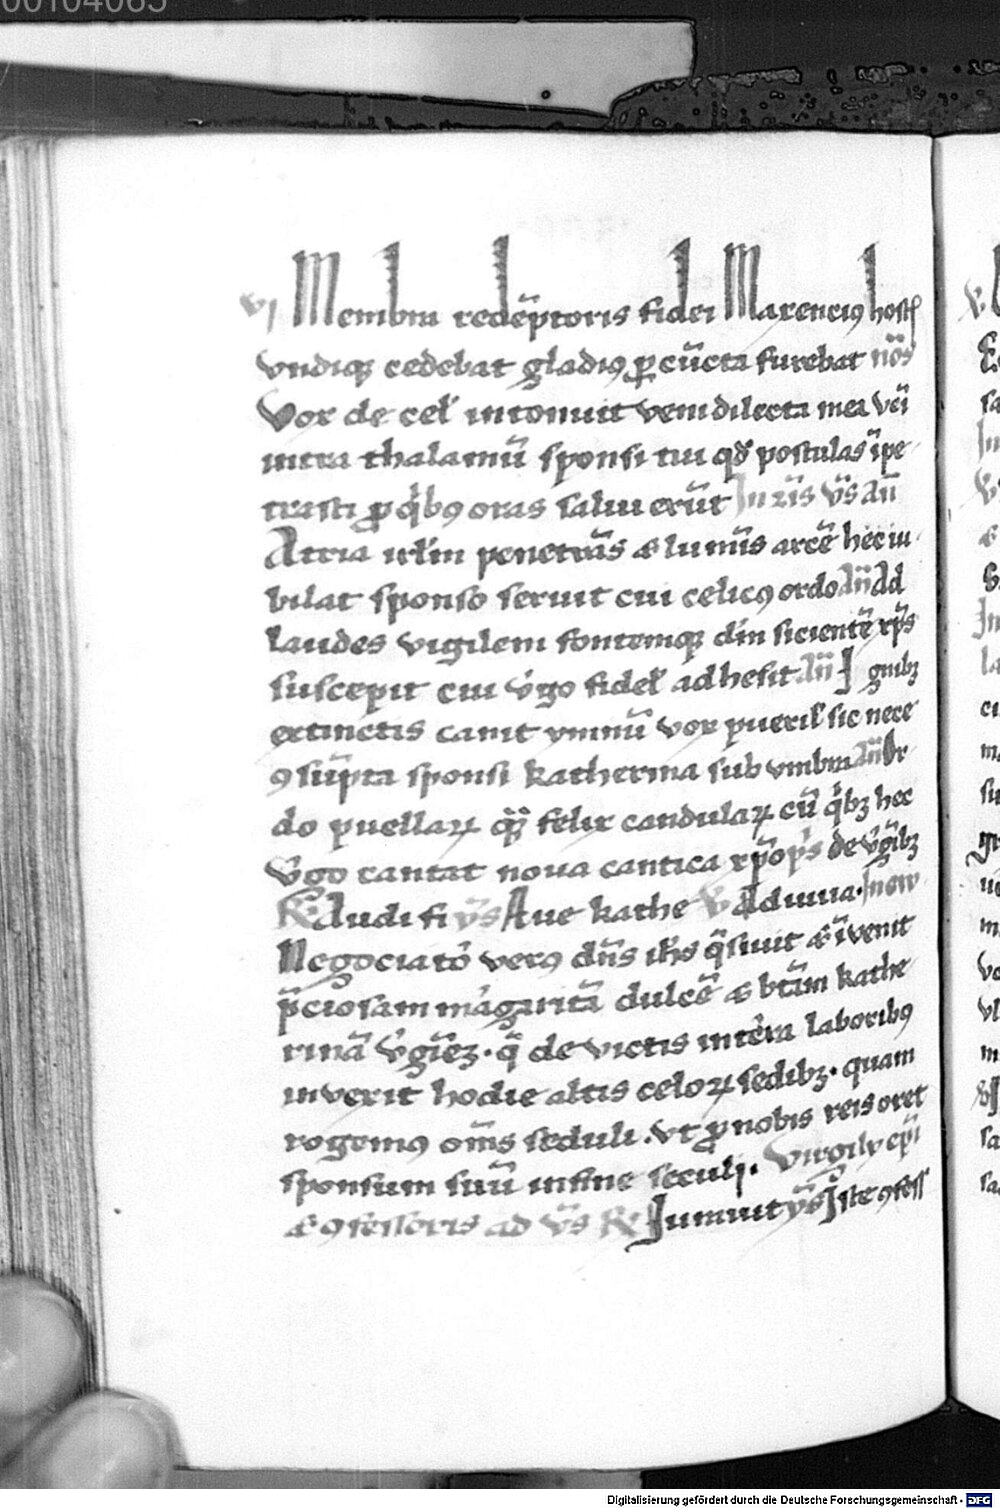 00104065
vj Membra redẽptoris fidei Maxencius hostis
vndiqꝫ cedebat gladiꝰ ꝑ cũcta furebat nõs
Vox de celis intonuit veni dilecta mea veni
intra thalamũ sponsi tui qđ postulas ĩpe
trasti ꝓ quibꝰ oras salui erũt In iijs v̓s añ
Atria irlm̃ penetrãs & luminis arcẽ hec iu
bilat sponso seruit cui celicꝰ ordo Añ Ad
laudes vigilem fontemqꝫ dñi sicientẽ xp̃s
suscepit cui v̓go fidelis adhesit Añ Ignibꝫ
extinctis canit ymnũ vox puerilis sic nece
ꝯsũpta sponsi katherina sub vmbra Añ Or
do puellaꝝ qꝫ felix candidulaꝝ cũ quibꝫ hec
v̓go cantat noua cantica xp̃o p̃s de v̓gĩbꝫ
R̃ Audi fi v̓s Aue kathe V Adiuua. In ew
Negociator verꝰ dñs ihs quesiuit & ĩvenit
p̃ciosam margaritã dulcẽ & btãm kathe
rinã v̓gĩeꝫ. q̃ de victis intera laboribus
invexit hodie altis celoꝝ sedibꝫ. quam
rogemꝰ om̃s seduli. vt ꝓ nobis reis oret
sponsum suũ in fine seculj. Virgilij ep̃i
& ꝯfessoris ad v̓s R̃ Iurauit v̓s Iste ꝯfess
Digitalisierung gefördert durch die Deutsche Forschungsgemeinschaft - DFG